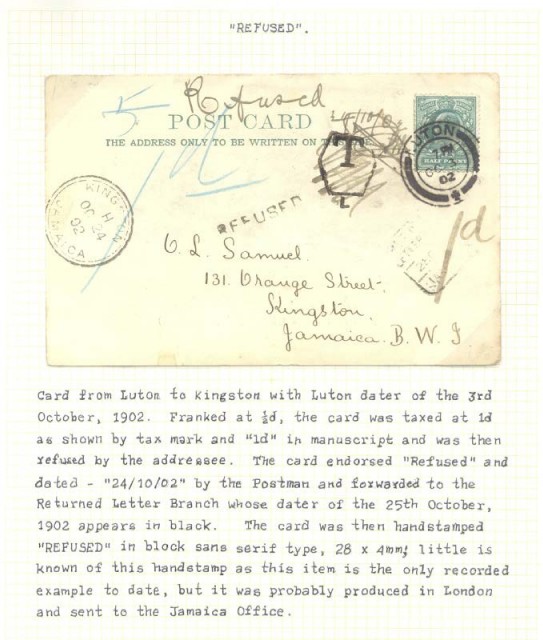 "REFUSED".
Refused
POST CARD
THE ADDRESS ONLY TO BE WRITTEN ON
24/10/02
T
L
HALF PENNY
LUTON
02
KINGSTON
H
OC 24
02
JAMAICA
REFUSED
1d
O. L. Samuel.
131. Orange Street.
Kingston,
Jamaica. B. W. I.
Card from Luton to Kingston with Luton dater of the 3rd
October, 1902. Franked at ½d, the card was taxed at 1d
as shown by tax mark and "1d" in manuscript and was then
refused by the addressee. The card endorsed "Refused" and
dated - "24/10/02" by the Postman and forwarded to the
Returned Letter Branch whose dater of the 25th October,
1902 appears in black. The card was then handstamped
"REFUSED" in block sans serif type, 28 x 4mm; little is
known of this handstamp as this item is the only recorded
example to date, but it was probably produced in London
and sent to the Jamaica Office.